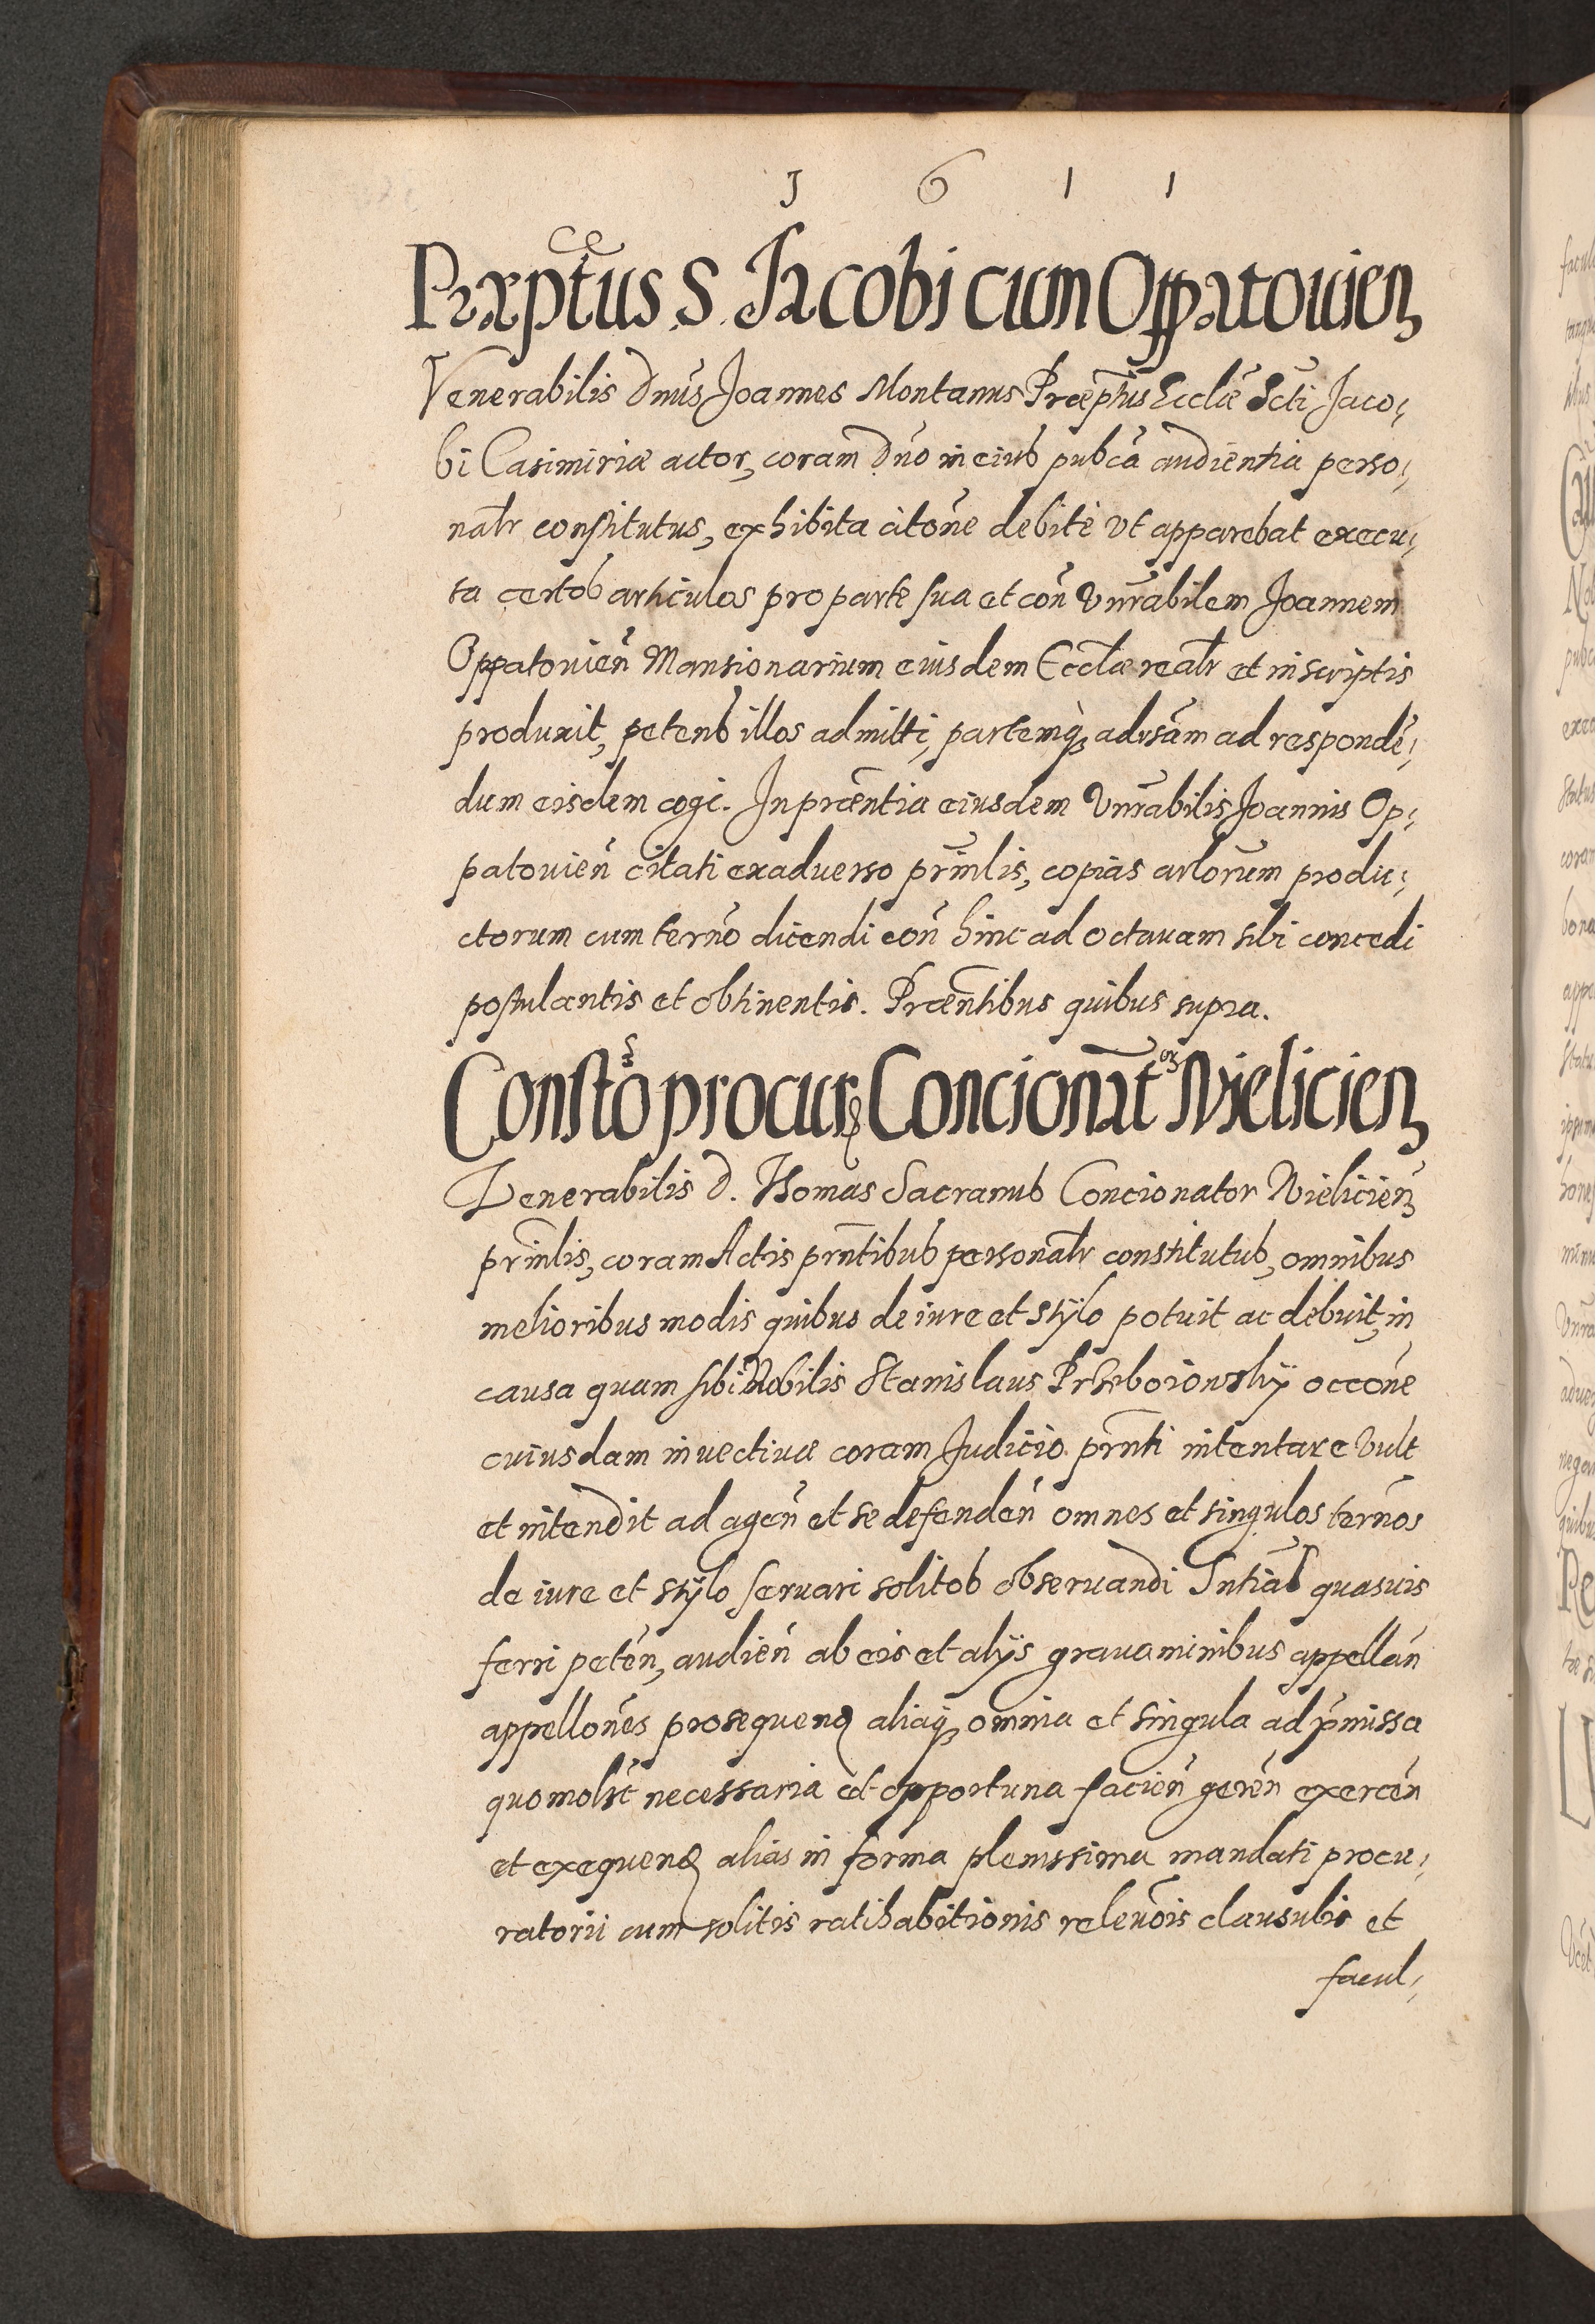 1 6 1 1
Præptus S. Jacobi cum Oppatouien
Venerabilis Dnus Joannes Montanus Præptus Eccliæ Scti Jaco,
bi Casimiriæ actor, coram Dno in eius pubca audientia perso,
nalr constitutus, exhibita citone debite vt apparebat execu,
ta certos articulos pro parte sua et con Vnrabilem Joannem
Oppatouien Mansionarium eiusdem Ecclæ realr et in scriptis
produxit, petens illos admitti, partemq, adrsam ad responde,
dum eisdem cogi. In præntia eiusdem Vnrabilis Joannis Op,
patouien citati ex aduerso prinlis, copias arlorum produ,
ctorum cum termo dicendi con hinc ad octauam sibi concedi
postulantis et obtinentis. Præntibus quibus supra.
Consto procur Concionat Wielicien
Venerabilis D. Thomas Sacranus Concionator Wielicien
prinlis, coram Actis prntibus personalr constitutus, omnibus
melioribus modis quibus de iure et stylo potuit ac debuit, in
causa quam sibi Nobilis Stanislaus occone
cuiusdam inuectiuæ coram Judicio prnti intentare vult
et intendit ad agen et se defenden omnes et singulos termos
de iure et stylo seruari solitos obseruandi Sntias quasuis
ferri peten, audien ab eis et alijs grauaminibus appellan
appellones prosequend aliaq, omnia et singula ad pmissa
quomolbt necessaria et opportuna facien geren exercen
et exequend alias in forma plenissima mandati procu,
ratorii cum solitis ratihabitionis releuois clausulis et
facul,